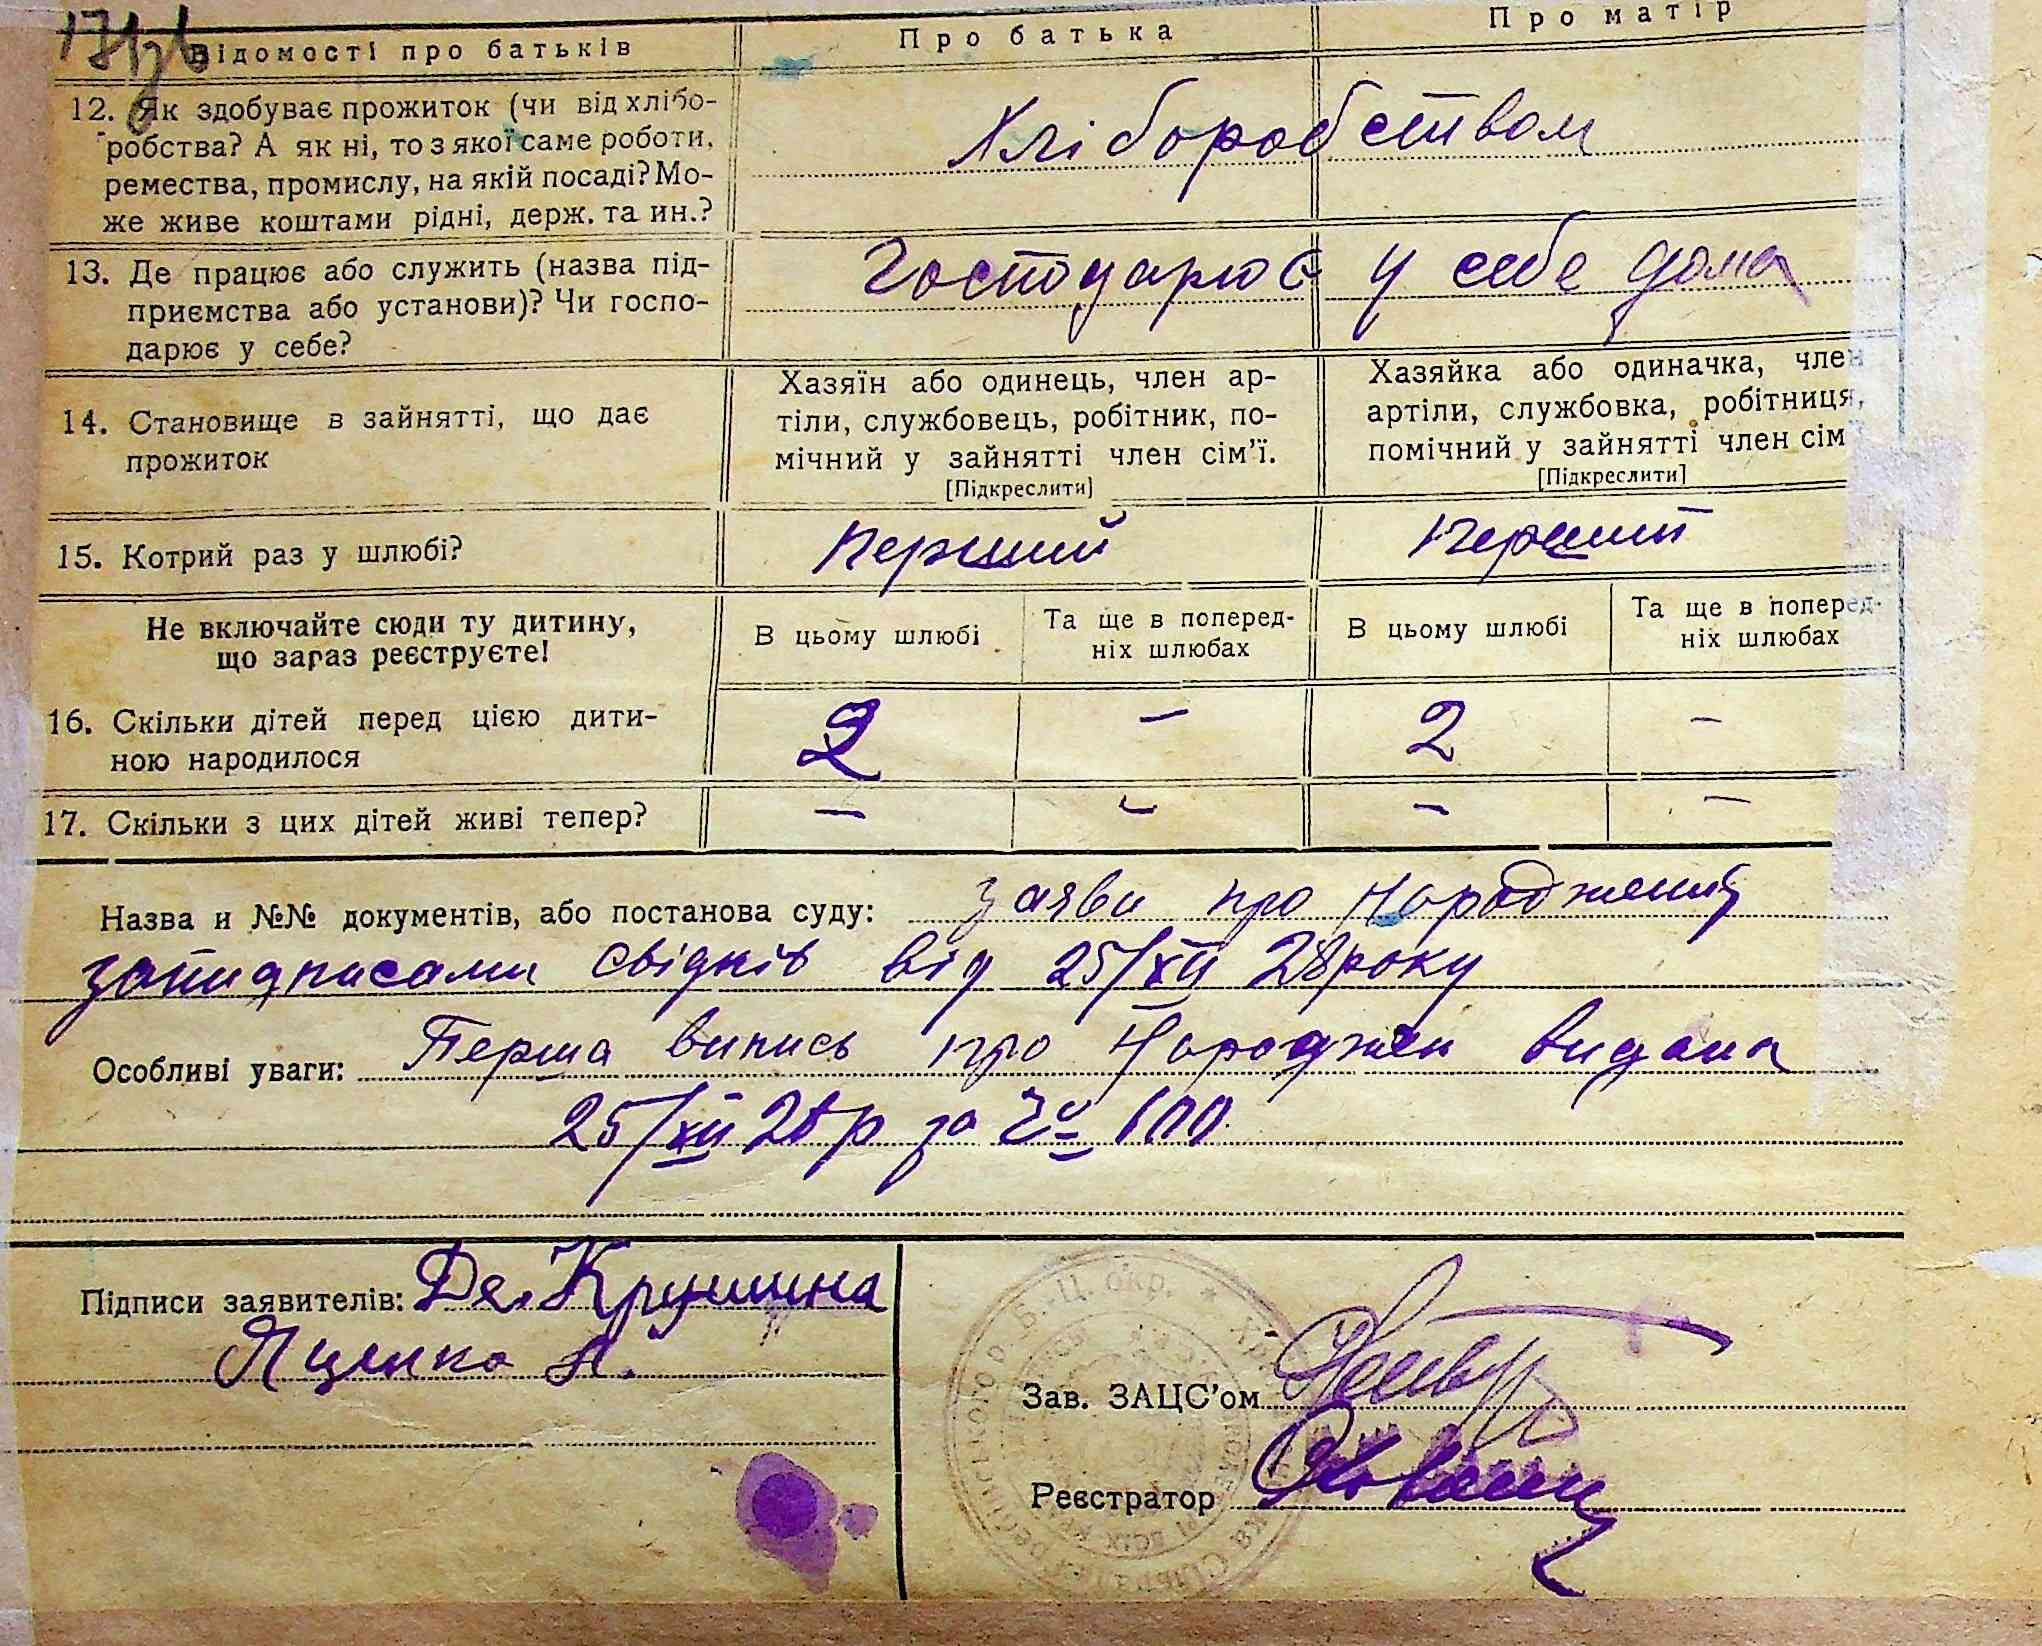 Відомості про батьків
Про батька
Про матір
12. Як здобуває прожиток (чи від хлібо-
робства? А як ні, то з якої саме роботи,
ремества, промислу, на якій посаді? Мо-
же живе коштами рідні, держ. та ин.?
Хліборобством
13. Де працює або служить (назва під-
приємства або установи)? Чи госпо-
дарює у себе?
Господарює у себе дома
14. Становище в зайнятті, що дає
прожиток
Хазяїн або одинець, член ар-
тіли, службовець, робітник, по-
мічний у зайнятті член сім'ї.
[Підкреслити]
Хазяйка або одиначка, член
артіли, службовка, робітниця,
помічний у зайнятті член сім
[Підкреслити]
15. Котрий раз у шлюбі?
перший
перший
Не включайте сюди ту дитину,
що зараз реєструєте!
В цьому шлюбі
Та ще в поперед-
ніх шлюбах
В цьому шлюбі
Та ще в поперед-
ніх шлюбах
16. Скільки дітей перед цією дити-
ною народилося
2 – 2 –
17. Скільки з цих дітей живі тепер?
– – – –
Назва и №№ документів, або постанова суду: заява про народження
запидписами свідків від 25/XII 28 року
Особливі уваги: Перша випись про народжен видана
25/XII 28 р за
Підписи заявителів: Крушина
Яценко А.
Б.-Ц. окр.
Зав. ЗАЦС'ом
Реєстратор